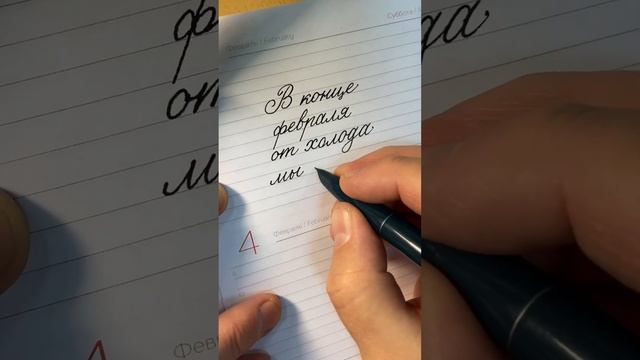 Суббота
Февраль / February
В конце
февраля
от холода
мы
4
Февраль / February